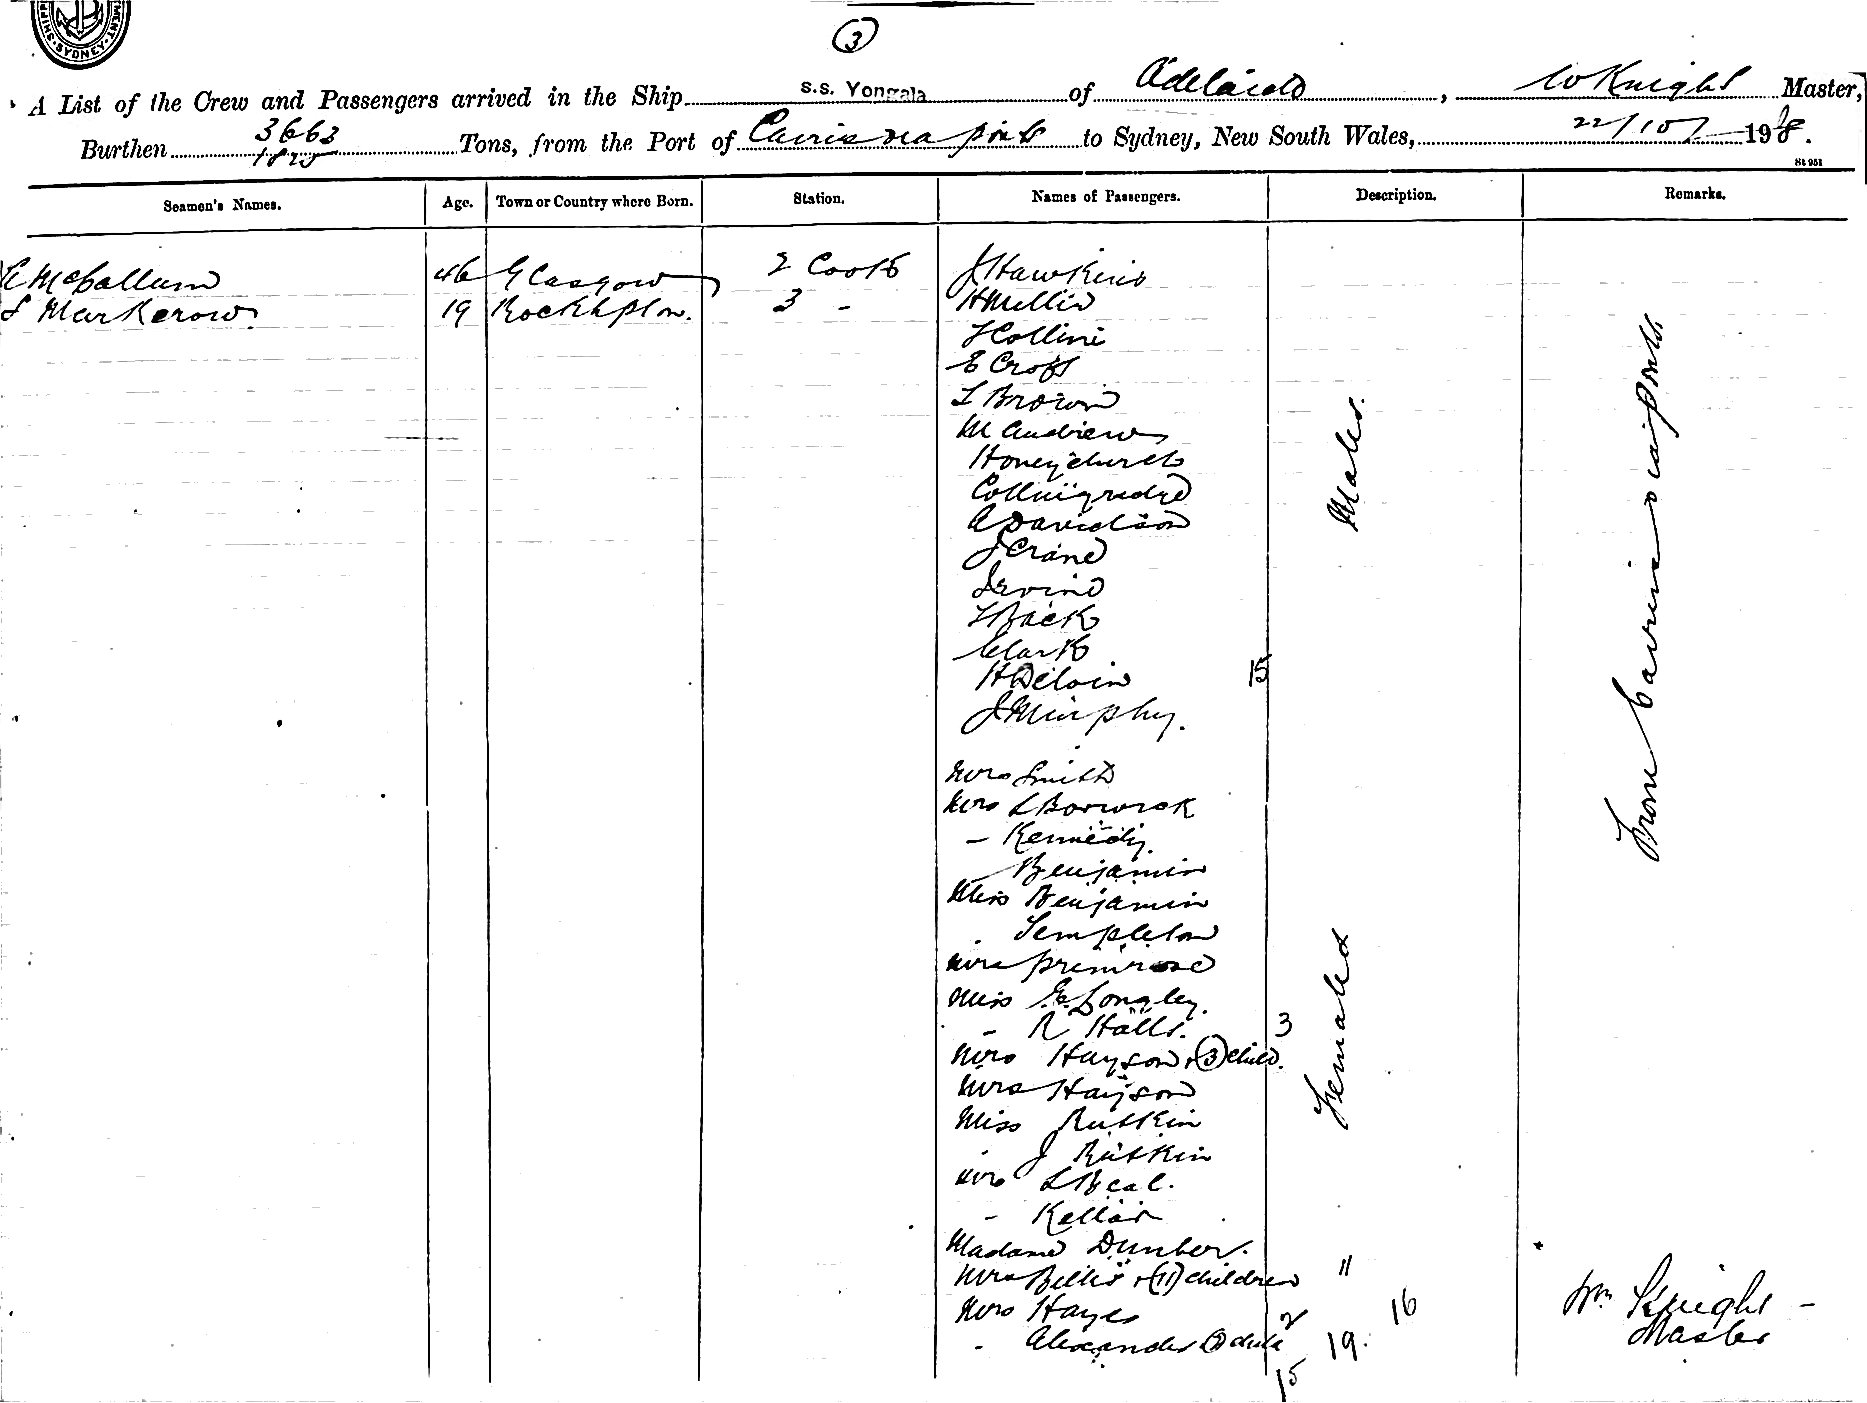 SYDNEY
3
A List of the Crew and Passengers arrived in the Ship s.s. Yongala of Adelaide, W Knight Master,
Burthen 3663 1825 Tons, from the Port of Cairns via ports to Sydney, New South Wales, 22/10/ 1908.
St 951
Seamen's Names. Age. Town or Country where Born. Station. Names of Passengers. Description. Remarks.
McCallum 46 Glasgow 2 Cook J Hawkins
19 Rockhpton. 3 - H Mellis
J Collins
E Croft
L Brown
M Andrews
Honeychurch
Collingridge
A Davidson
J Crane
Irvine
Back
Clark
H Delvin 15
J Murphy.
Males.
From Cairns via ports
Mrs Smith
Mrs L Borwick
- Kennedy.
- Benjamin
Miss Benjamin
Templeton
Mrs Primrose
Miss E Longley.
- R Halls. 3
Mrs Hayson + (3) child.
Mrs Hayson
Miss Rutkin
J Rutkin
Mrs L Beal.
- Kellar
Madame Dunbar.
Mrs + (11) children 11
Mrs Hayes 16
Alexander 2 19.
15
Females
Wm Knight -
Master